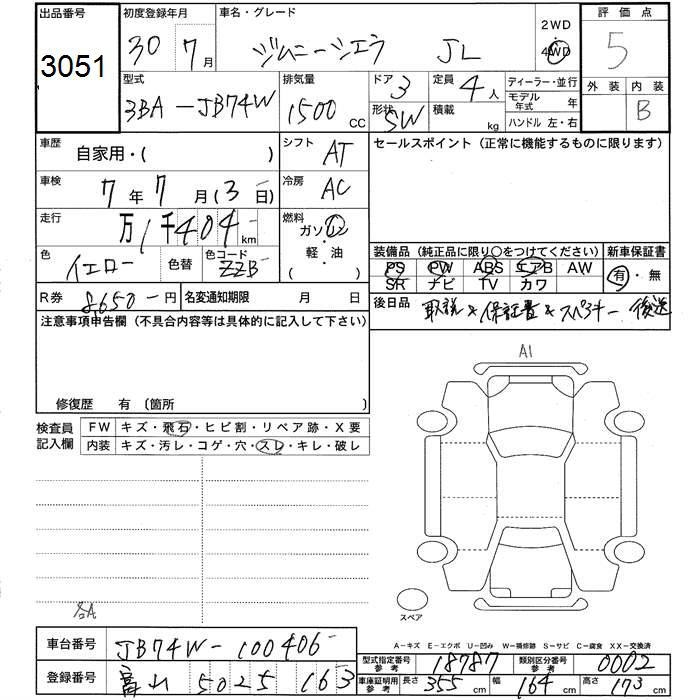 出品番号 初度登録年月 車名・グレード 2WD 評価点
3051 30年7月 ジムニーシエラ JL 4WD 5
型式 排気量 ドア 3 定員 4人 ディーラー・並行 外装 内装
3BA-JB74W 1500cc 形状 SW 積載 kg モデル年式 年 B
ハンドル 左・右
車歴 自家用・( ) シフト AT セールスポイント (正常に機能するものに限ります)
車検 7年7月(3日) 冷房 AC
走行 万1千404km 燃料 ガソリン
色 イエロー 色替 色コード ZZB 軽・油 ( ) 装備品 (純正品に限り○をつけてください) 新車保証書
PS PW ABS エアB AW 有・無
SR ナビ TV カワ
R券 8,650-円 名変通知期限 月 日 後日品 取説&保証書&スペアキー 後送
注意事項申告欄 (不具合内容等は具体的に記入して下さい)
A1
修復歴 有 (箇所
検査員記入欄 FW キズ・飛石・ヒビ割・リペア跡・X要
内装 キズ・汚レ・コゲ・穴・スレ・キレ・破レ
スペア
A-キズ E-エクボ U-凹み W-補修跡 S-サビ C-腐食 XX-交換済
車台番号 JB74W-100406 型式指定番号 参考 18787 類別区分番号 参考 0002
登録番号 富山 502 5 163 車庫証明用 参考 長さ 355cm 幅 164cm 高さ 173cm